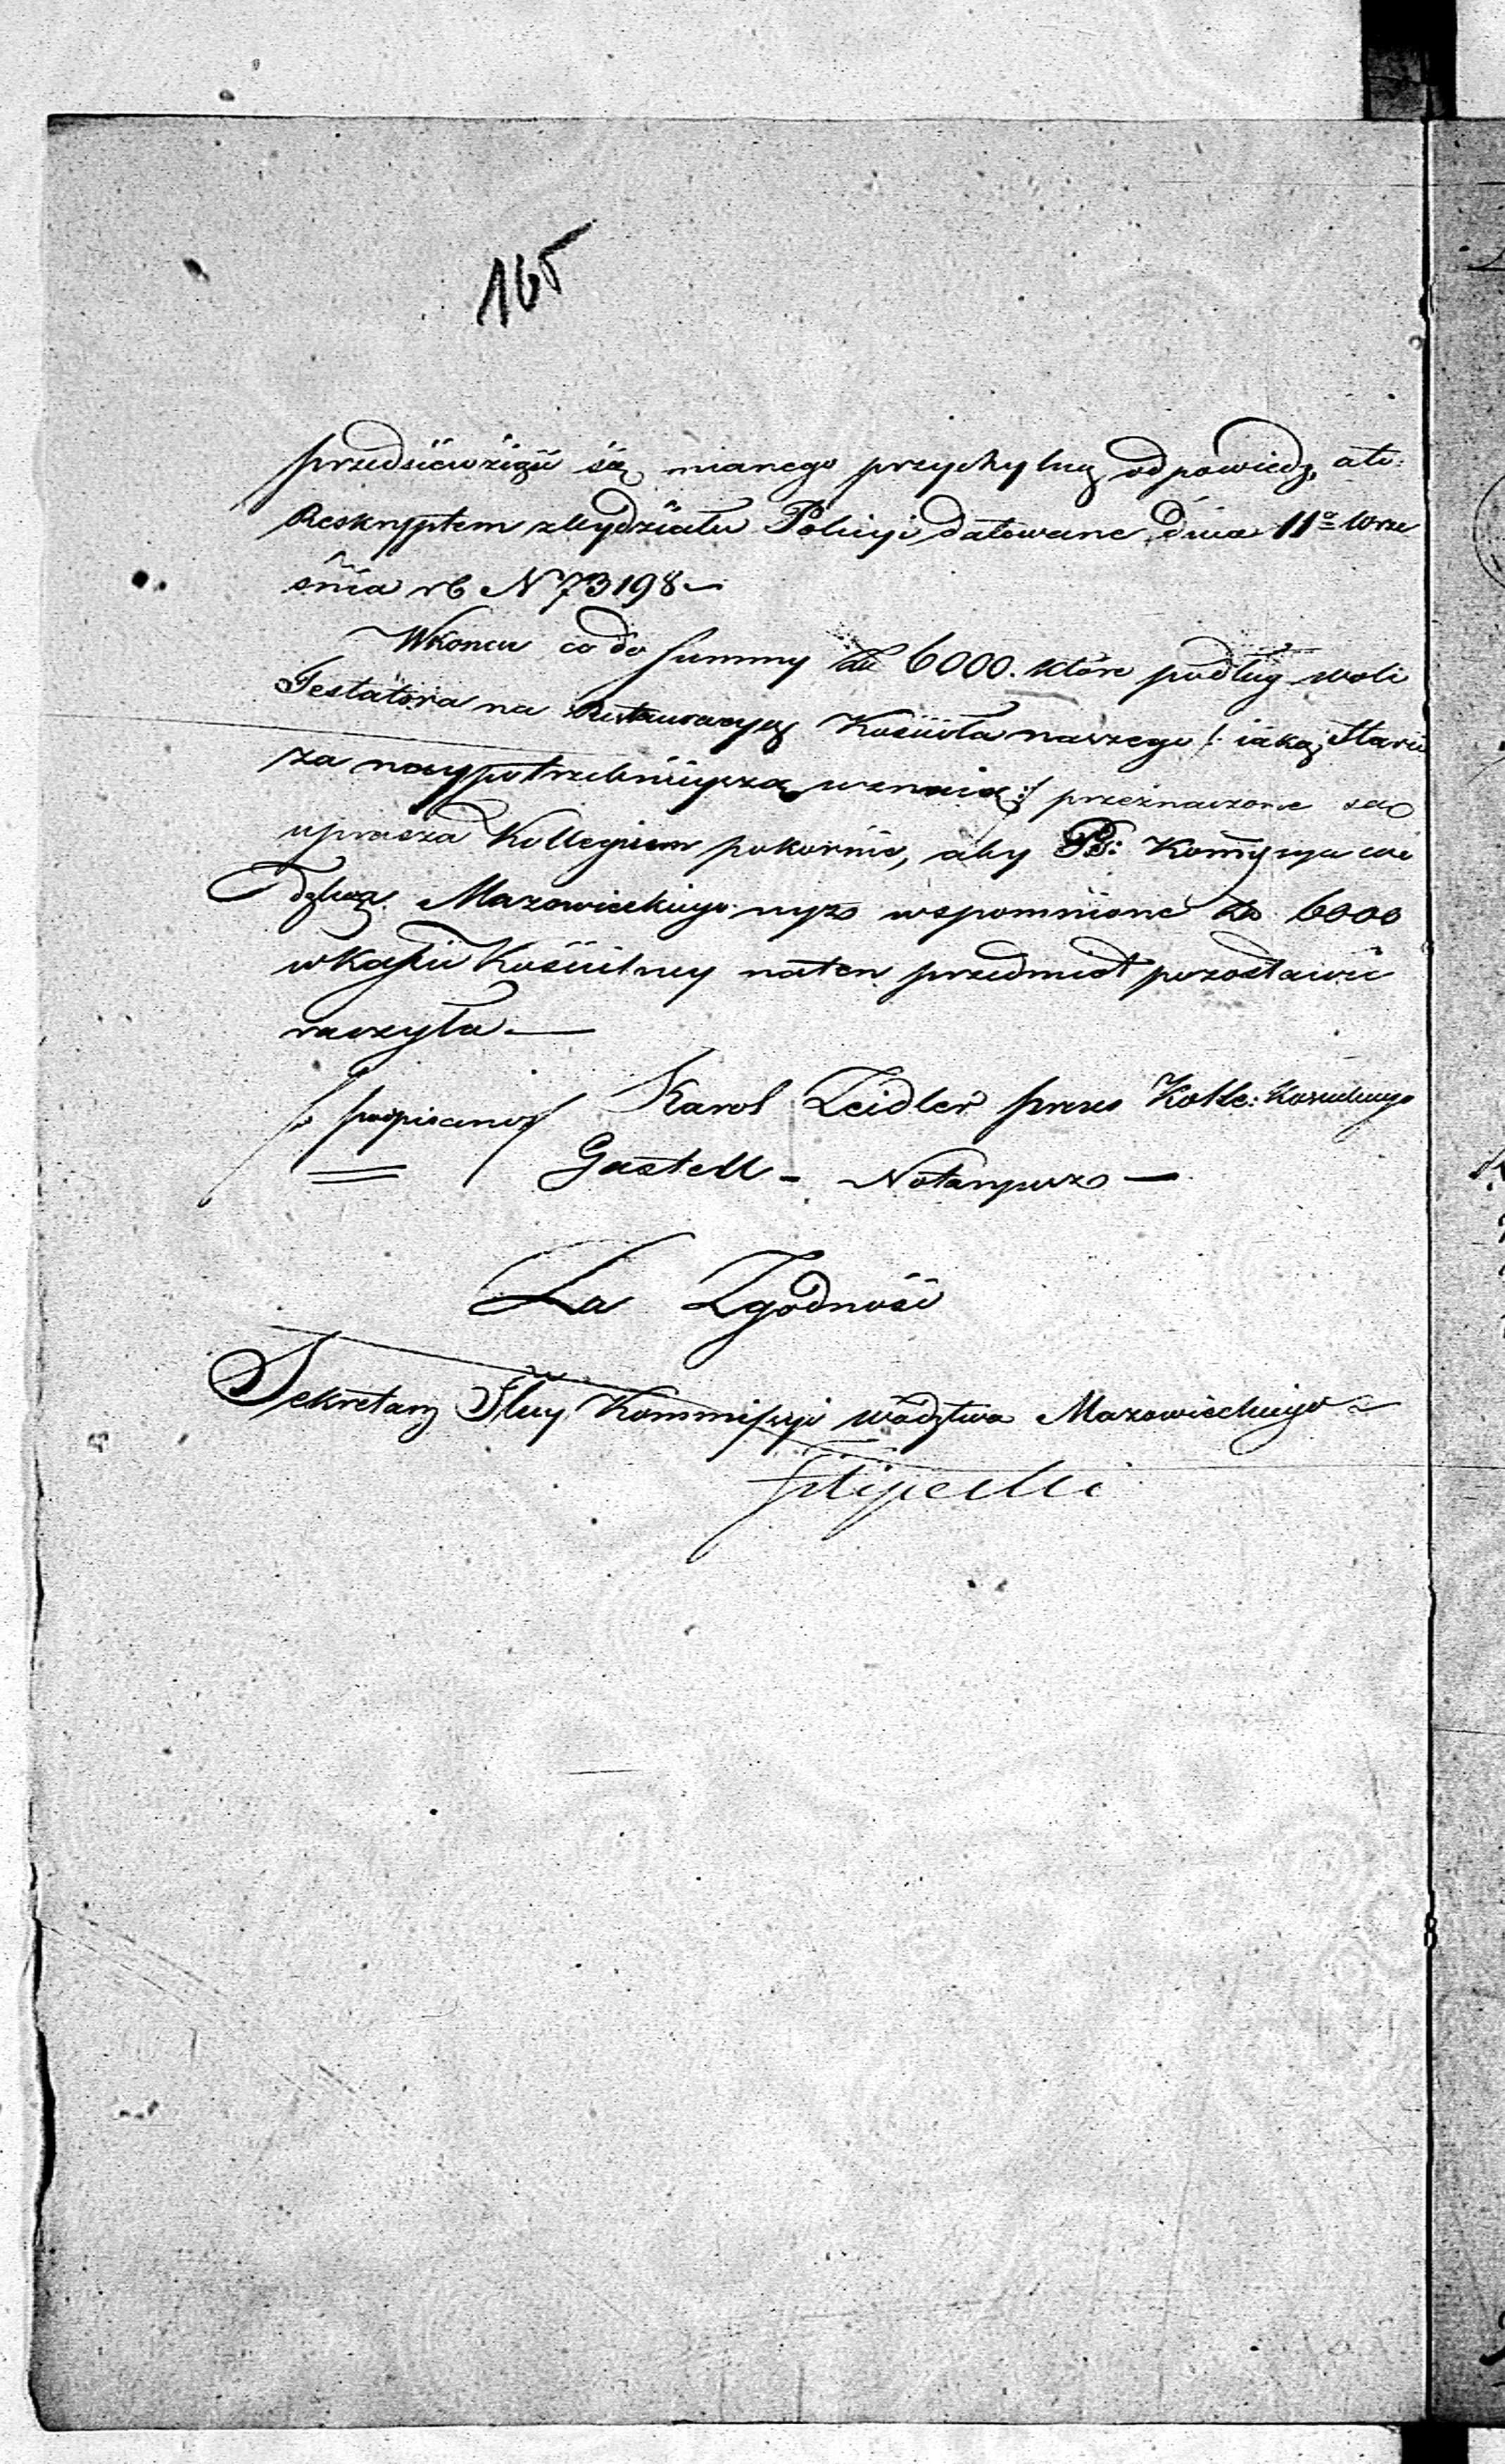 165
przedsięwzięciu się mianego przychylną odpowiedz, a to:
Reskryptem z Wydziału Policyi datowane dnia 11º Wrze
śnia rb N 73198 —
Wkoncu co do summy zł 6000. które podług woli
Testatora na Restauracyą Kościoła naszego /: iaką
za naypotrzebnieyszą uznaią :/ przeznaczone są
uprasza Kollegium pokornie, aby Komyssya Wo
dztwa Mazowieckiego wyżo wspomnione zł 6000
w Kassie Kościelney na ten przedmiot pozostawić
raczyła —
/ podpisano / Karol Zeidler prezes Kolle: Kościelnego
Gastell - Notaryusz —
Za Zgodność
Sekretarz Jlny Kommissyi Wdztwa Mazowieckiego
Filipecki